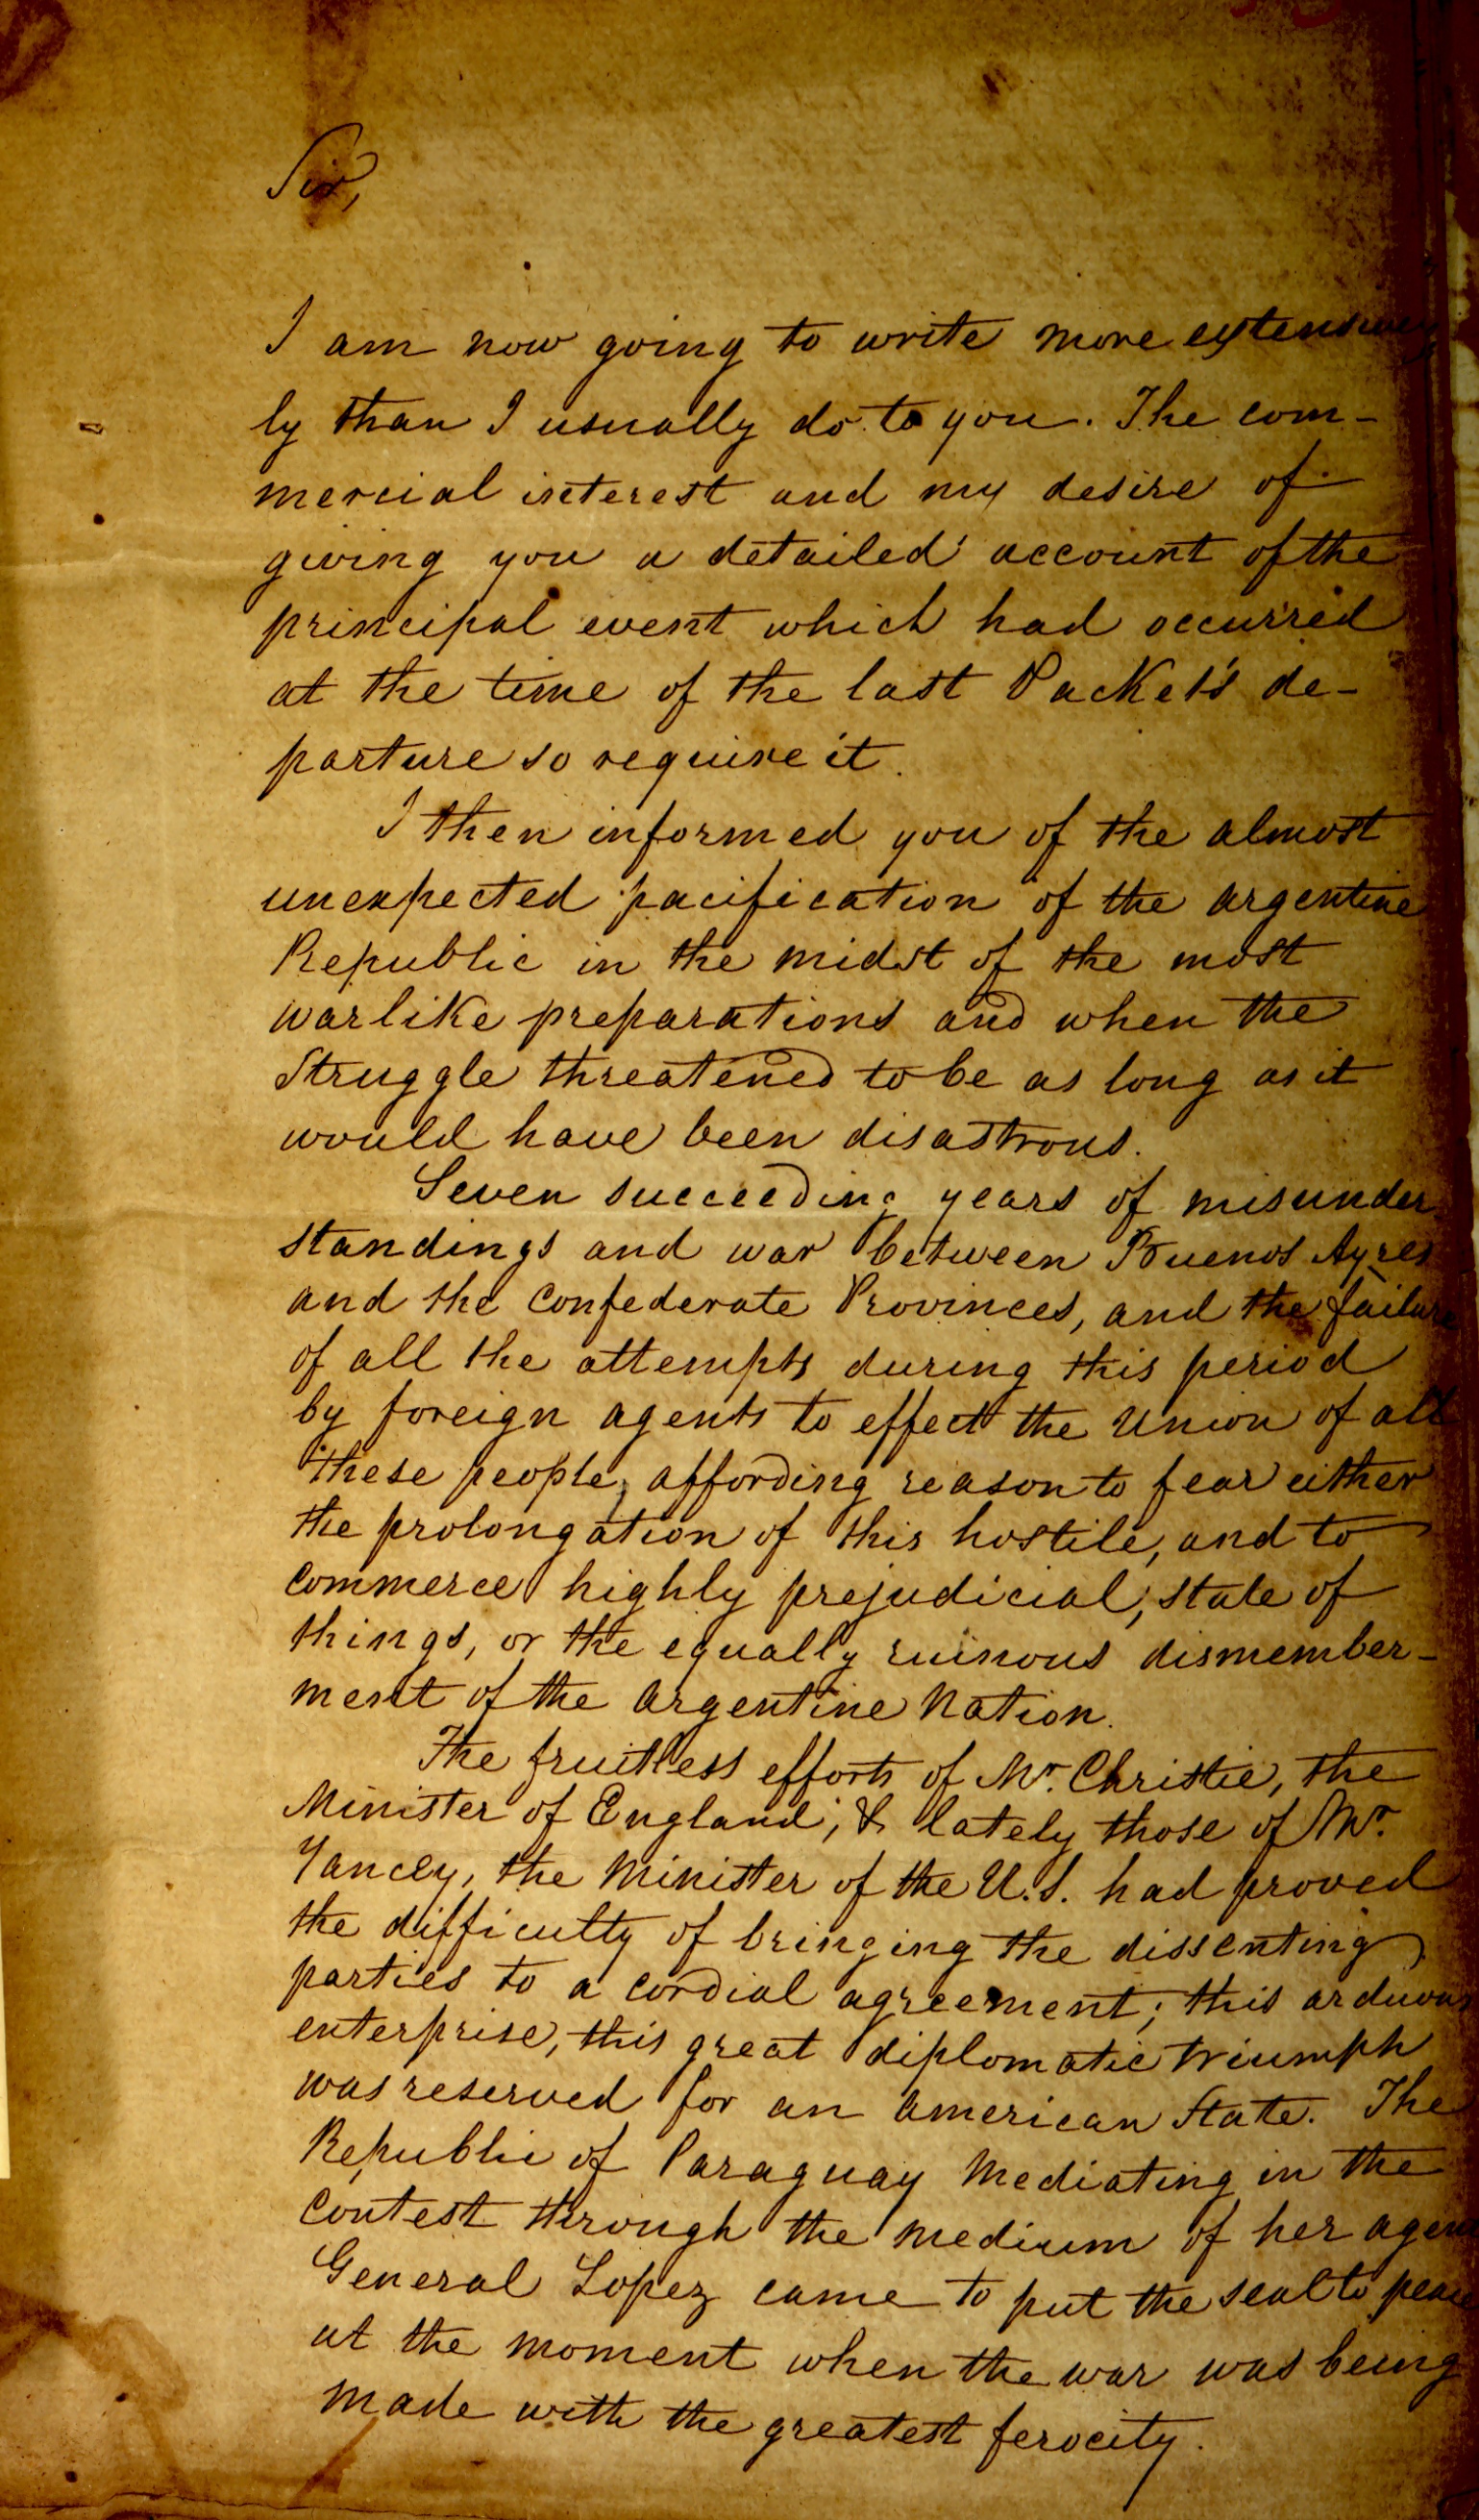 Sir,
I am now going to write more extensive
ly than I usually do to you. The com-
mercial interest and my desire of
giving you a detailed account of the
principal event which had occurred
at the time of the last Packet's de-
parture so require it.
I then informed you of the almost
unexpected pacification of the argentine
Republic in the midst of the most
warlike preparations and when the
Struggle threatened to be as long as it
would have been disastrous.
Seven succeeding years of misunder
standings and war between Buenos Ayres
and the Confederate Provinces, and the failure
of all the attempts during this period
by foreign agents to effect the Union of all
these people, affording reason to fear either
the prolongation of this hostile, and to
commerce highly prejudicial, state of
things, or the equally ruinous dismember-
ment of the Argentine Nation.
The fruitless efforts of Mr. Christie, the
Minister of England, & lately those of Mr.
Yancey, the Minister of the U.S. had proved
the difficulty of bringing the dissenting
parties to a cordial agreement; this arduous
enterprise, this great diplomatic triumph
was reserved for an American State. The
Republic of Paraguay Mediating in the
Contest through the medium of her agen
General Lopez came to put the seal to peace
at the moment when the war was being
made with the greatest ferocity.